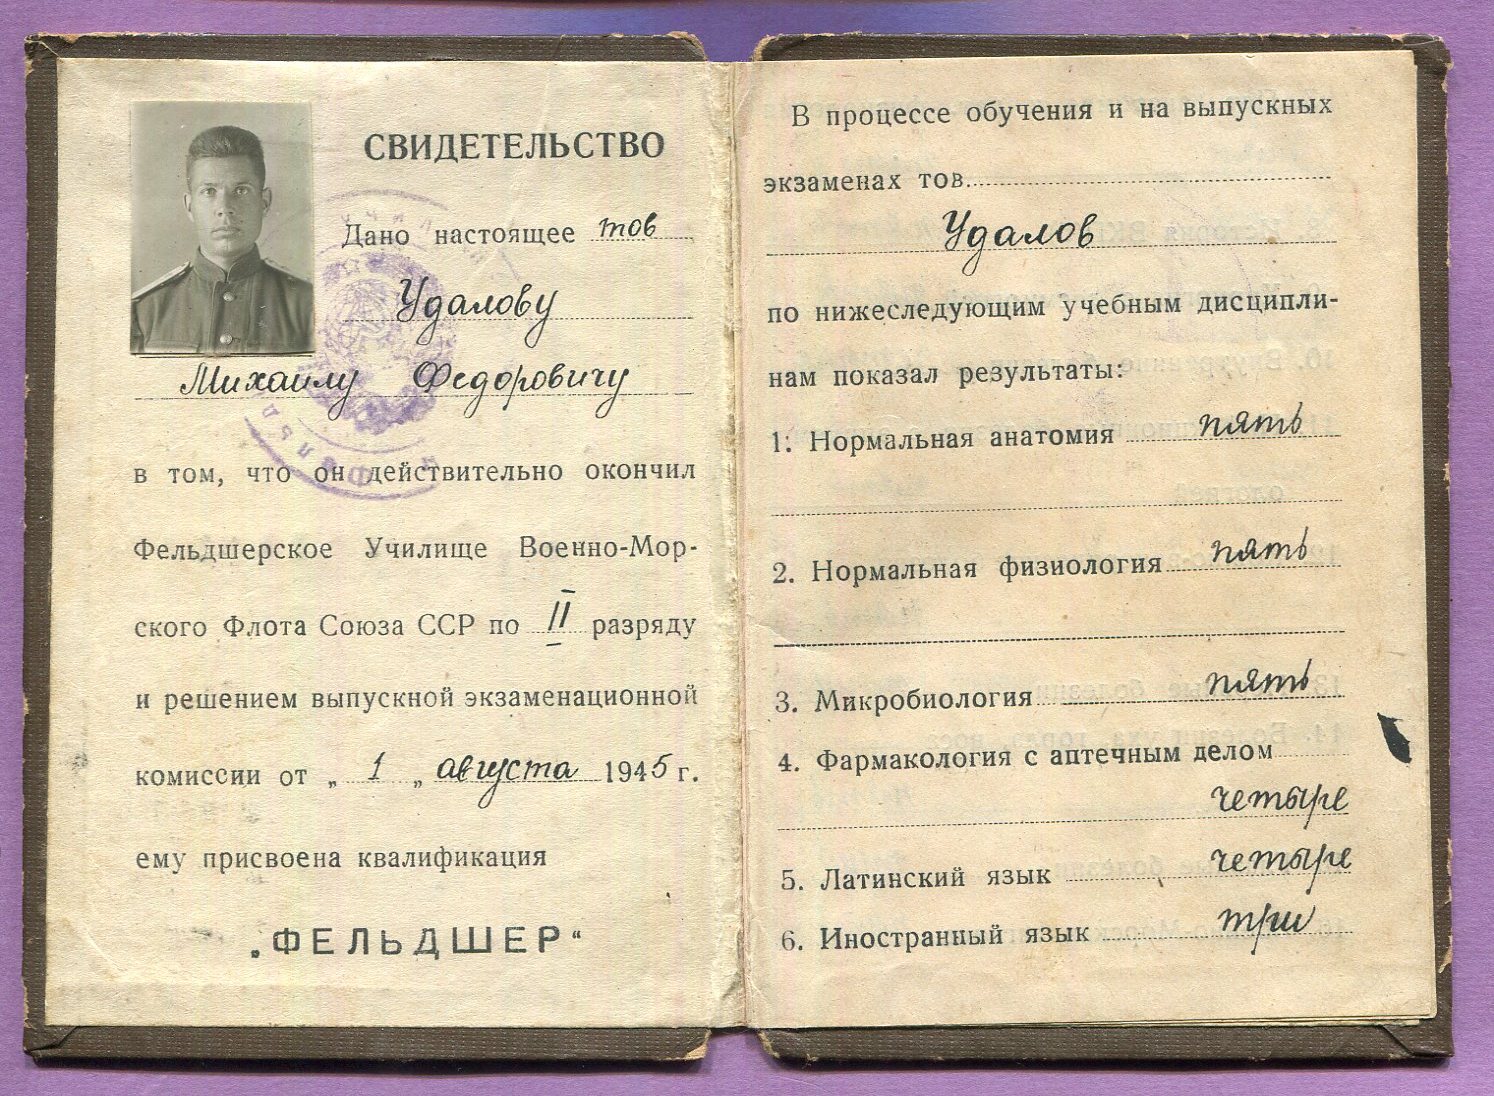 СВИДЕТЕЛЬСТВО
Дано настоящее тов
Удалову
Михаилу Федоровичу
в том, что он действительно окончил
Фельдшерское Училище Военно-Мор-
ского Флота Союза ССР по II разряду
и решением выпускной экзаменационной
комиссии от „ 1 „ августа 1945 г.
ему присвоена квалификация
„ФЕЛЬДШЕР“
В процессе обучения и на выпускных
экзаменах тов.
Удалов
по нижеследующим учебным дисципли-
нам показал результаты:
1. Нормальная анатомия пять
2. Нормальная физиология пять
3. Микробиология пять
4. Фармакология с аптечным делом
четыре
5. Латинский язык четыре
6. Иностранный язык три